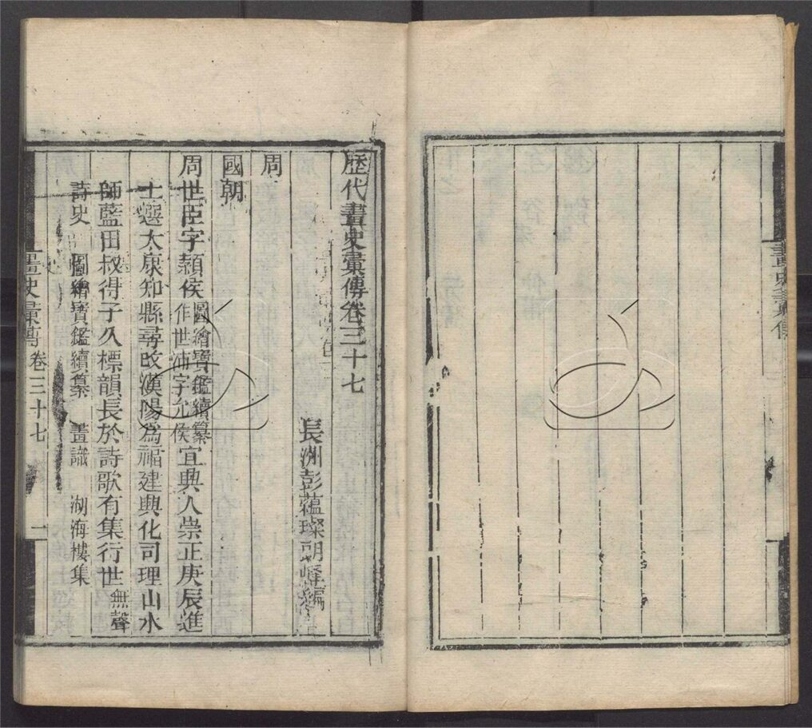 畫史彙傳
歷代畫史彙傳卷三十七
長洲彭蘊璨朗峰編
周
國朝
周世臣字穎侯圖繪寶鑑續纂作世沛字允侯宜興人崇正庚辰進
士選太康知縣尋改漢陽為福建興化司理山水
師藍田叔得子久標韻長於詩歌有集行世無聲
詩史 圖繪寶鑑續纂 畫識 湖海樓集
畫史彙傳 卷三十七 一